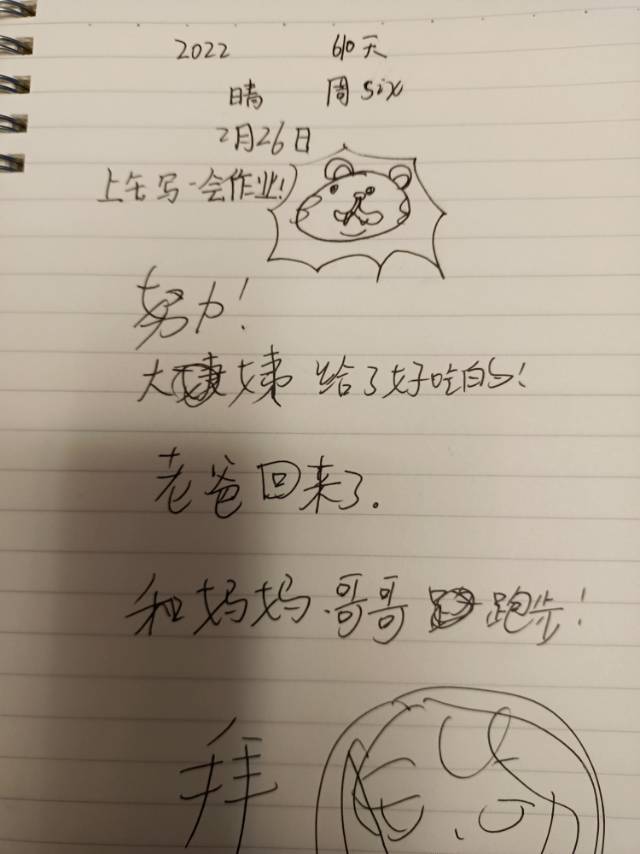 2022 610天
晴 周six
2月26日
上午写一会作业!
努力!
大姨给了好吃的!
老爸回来了.
和妈妈.哥哥 跑步!
拜